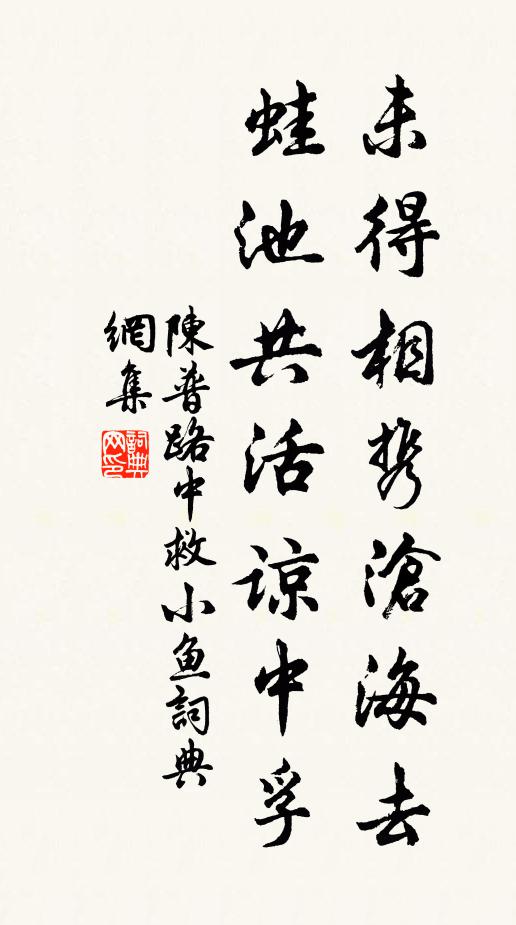 未得相携滄海去
蛙池共活諒中孚
陳普路中救小魚詞典
網集
詞典
网印